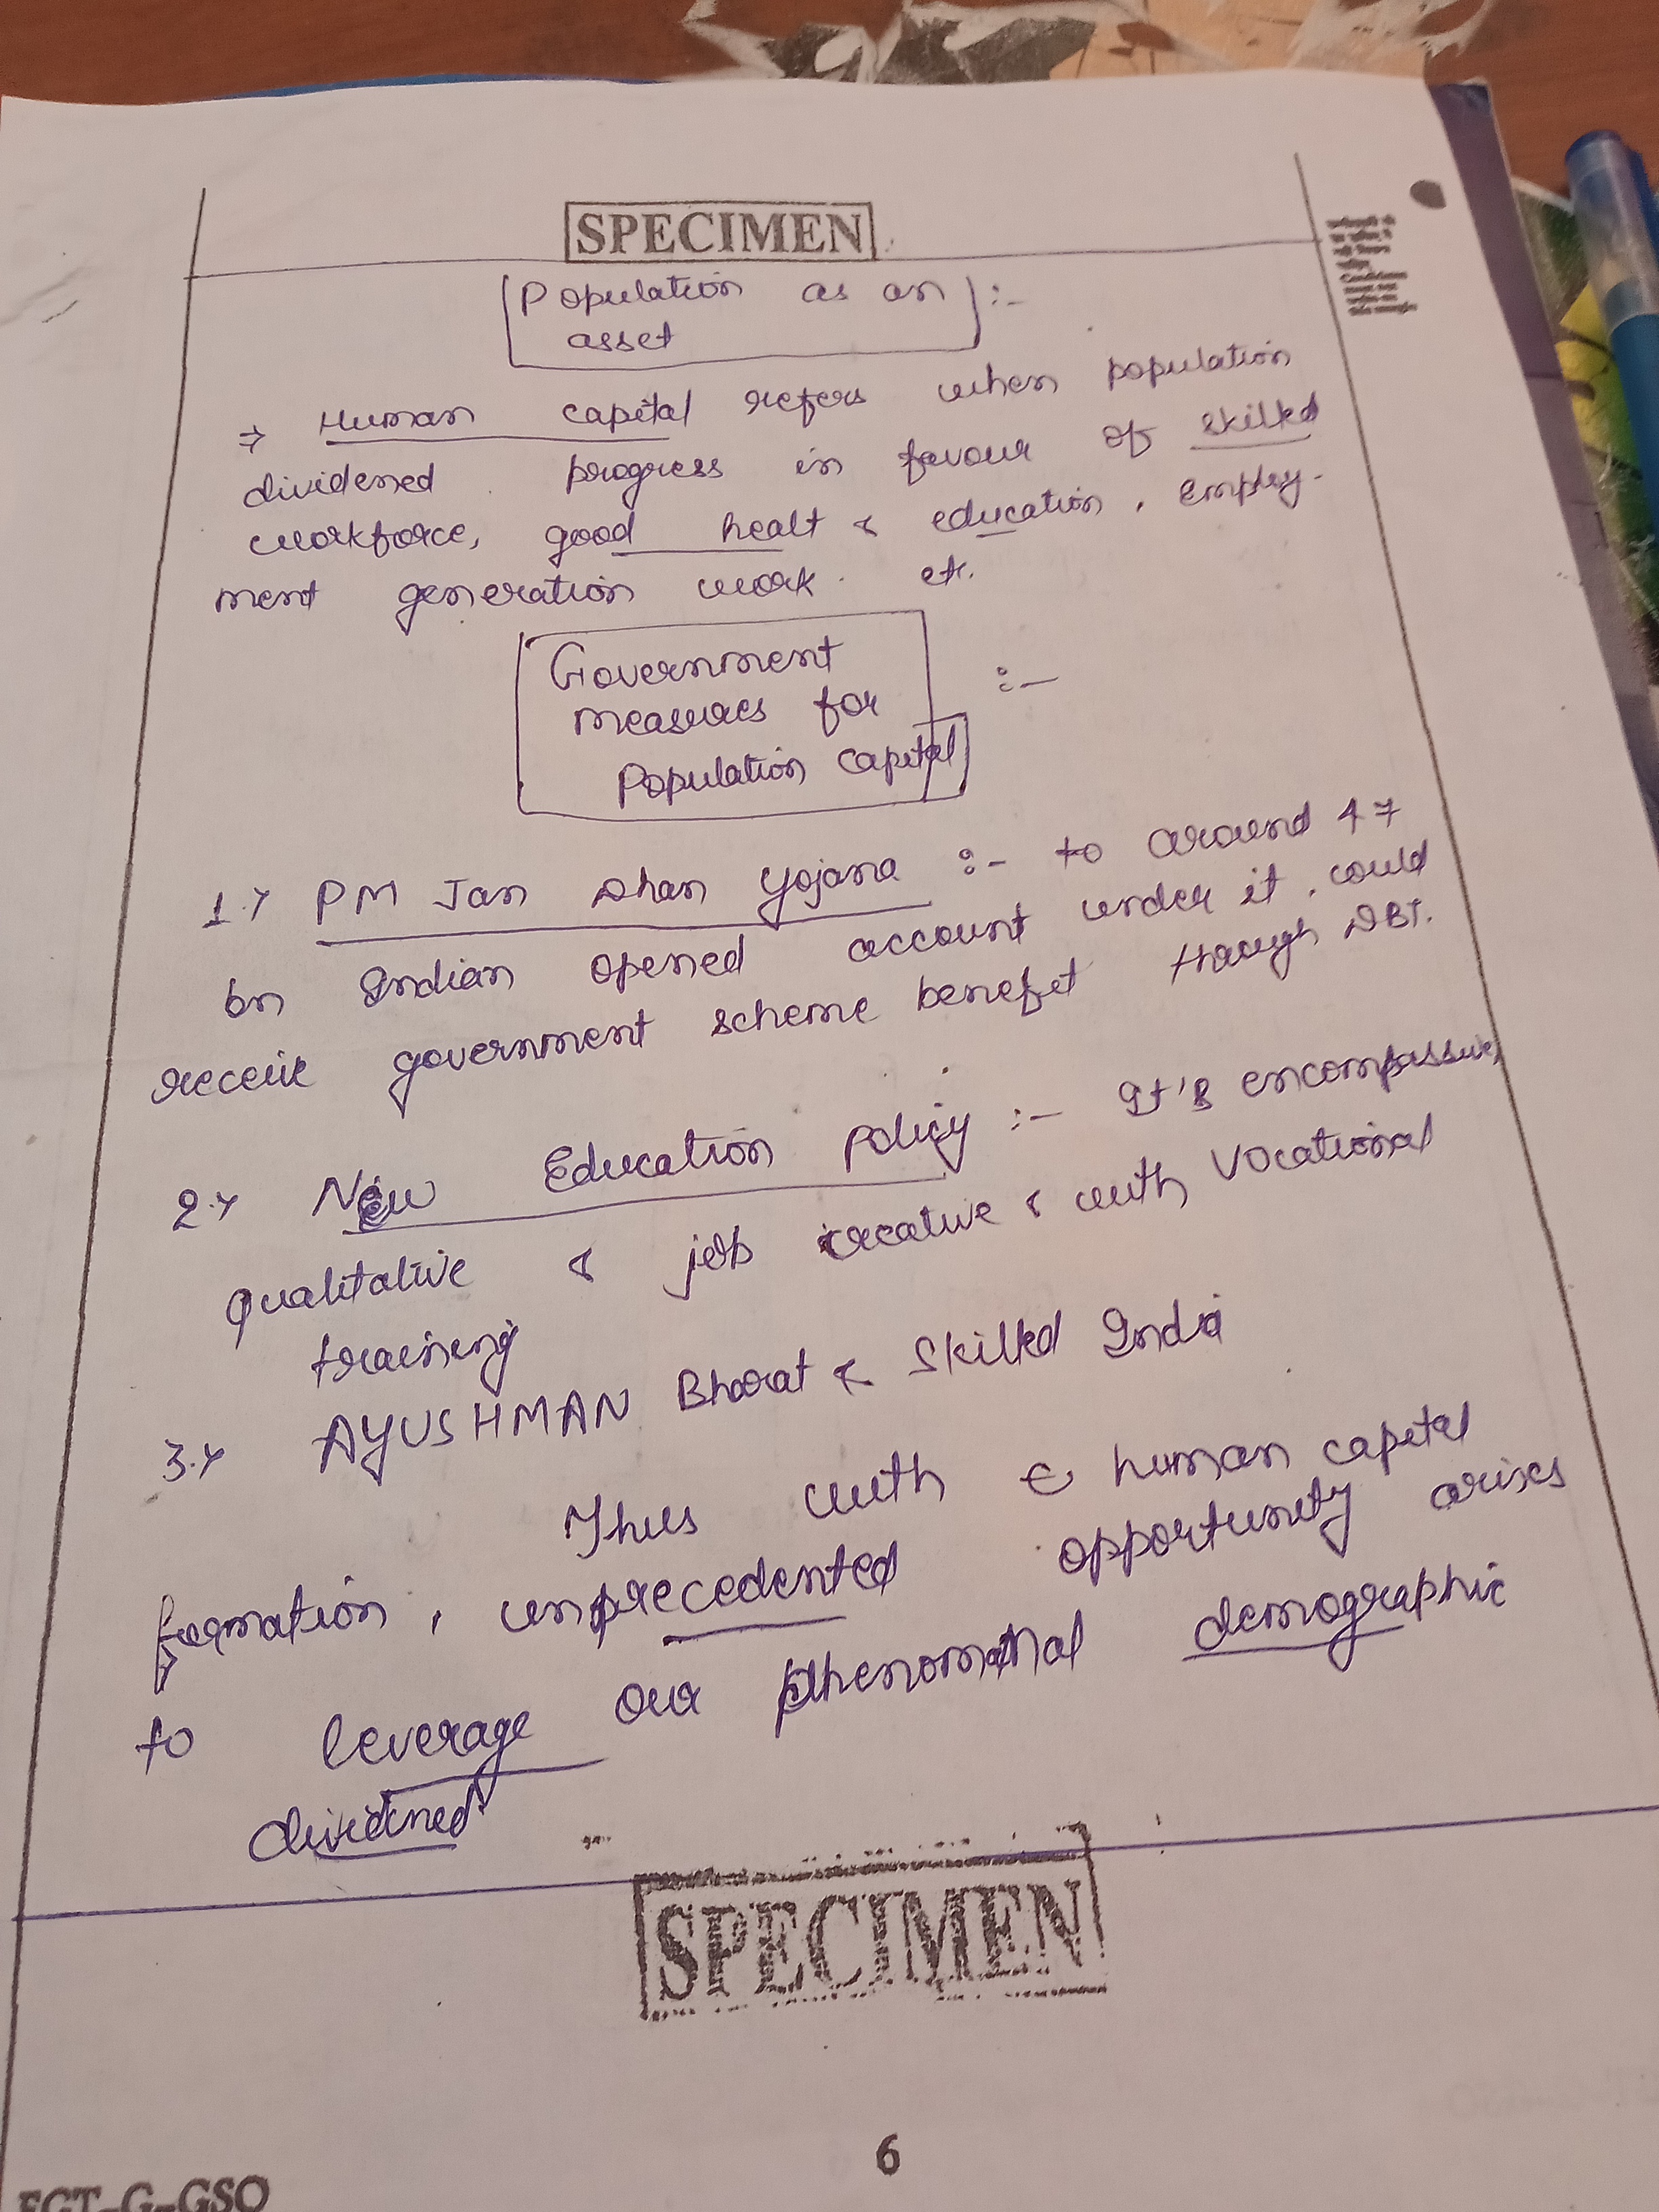 SPECIMEN
Population as an :-
asset
⇒ Human capital refers when population
dividened progress in favour of skilled
workforce, good healt & education, employ-
ment generation work etc.
Government
measures for :-
Population capital
1.> PM Jan Dhan Yojana :- to around 47
bn Indian opened account under it, could
receive government scheme benefit through DBT.
2.> New Education Policy :- It's encompassive,
qualitative & job creative & with vocational
training
3.> AYUSHMAN Bharat & Skilled India
Thus with human capital
formation, unprecedented opportunity arises
to leverage our phenomenal demographic
dividened
SPECIMEN
6
FGT-G-GSO